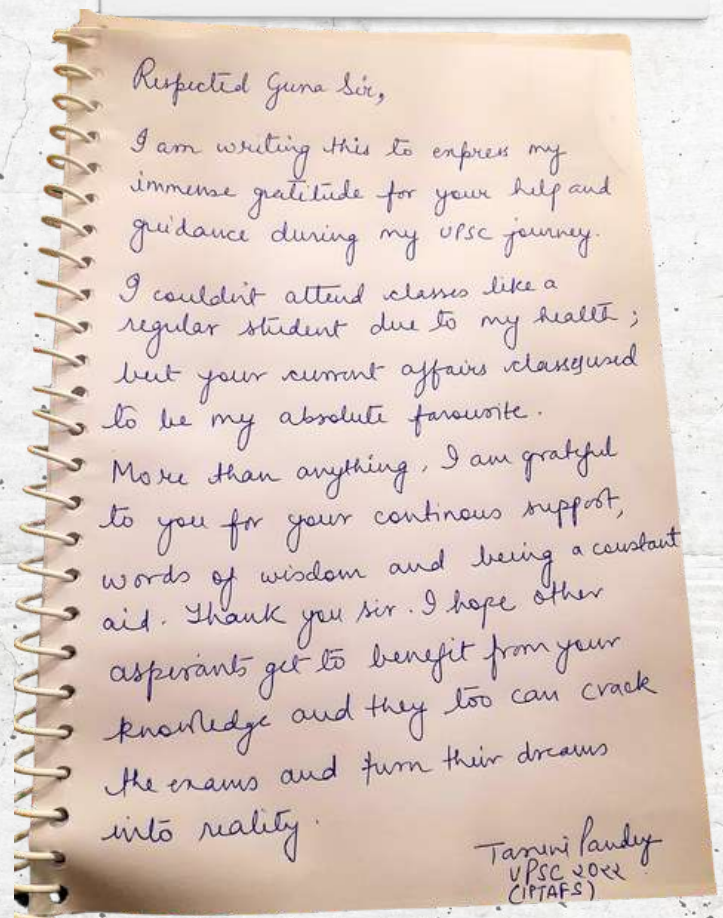 Respected Guna Sir,
I am writing this to express my
immense gratitude for your help and
guidance during my UPSC journey.
I couldn't attend classes like a
regular student due to my health;
but your current affairs classes used
to be my absolute favourite.
More than anything, I am grateful
to you for your continous support,
words of wisdom and being a constant
aid. Thank you sir. I hope other
aspirants get to benefit from your
knowledge and they too can crack
the exams and turn their dreams
into reality.
Pandey
UPSC 2022
(IPTAFS)